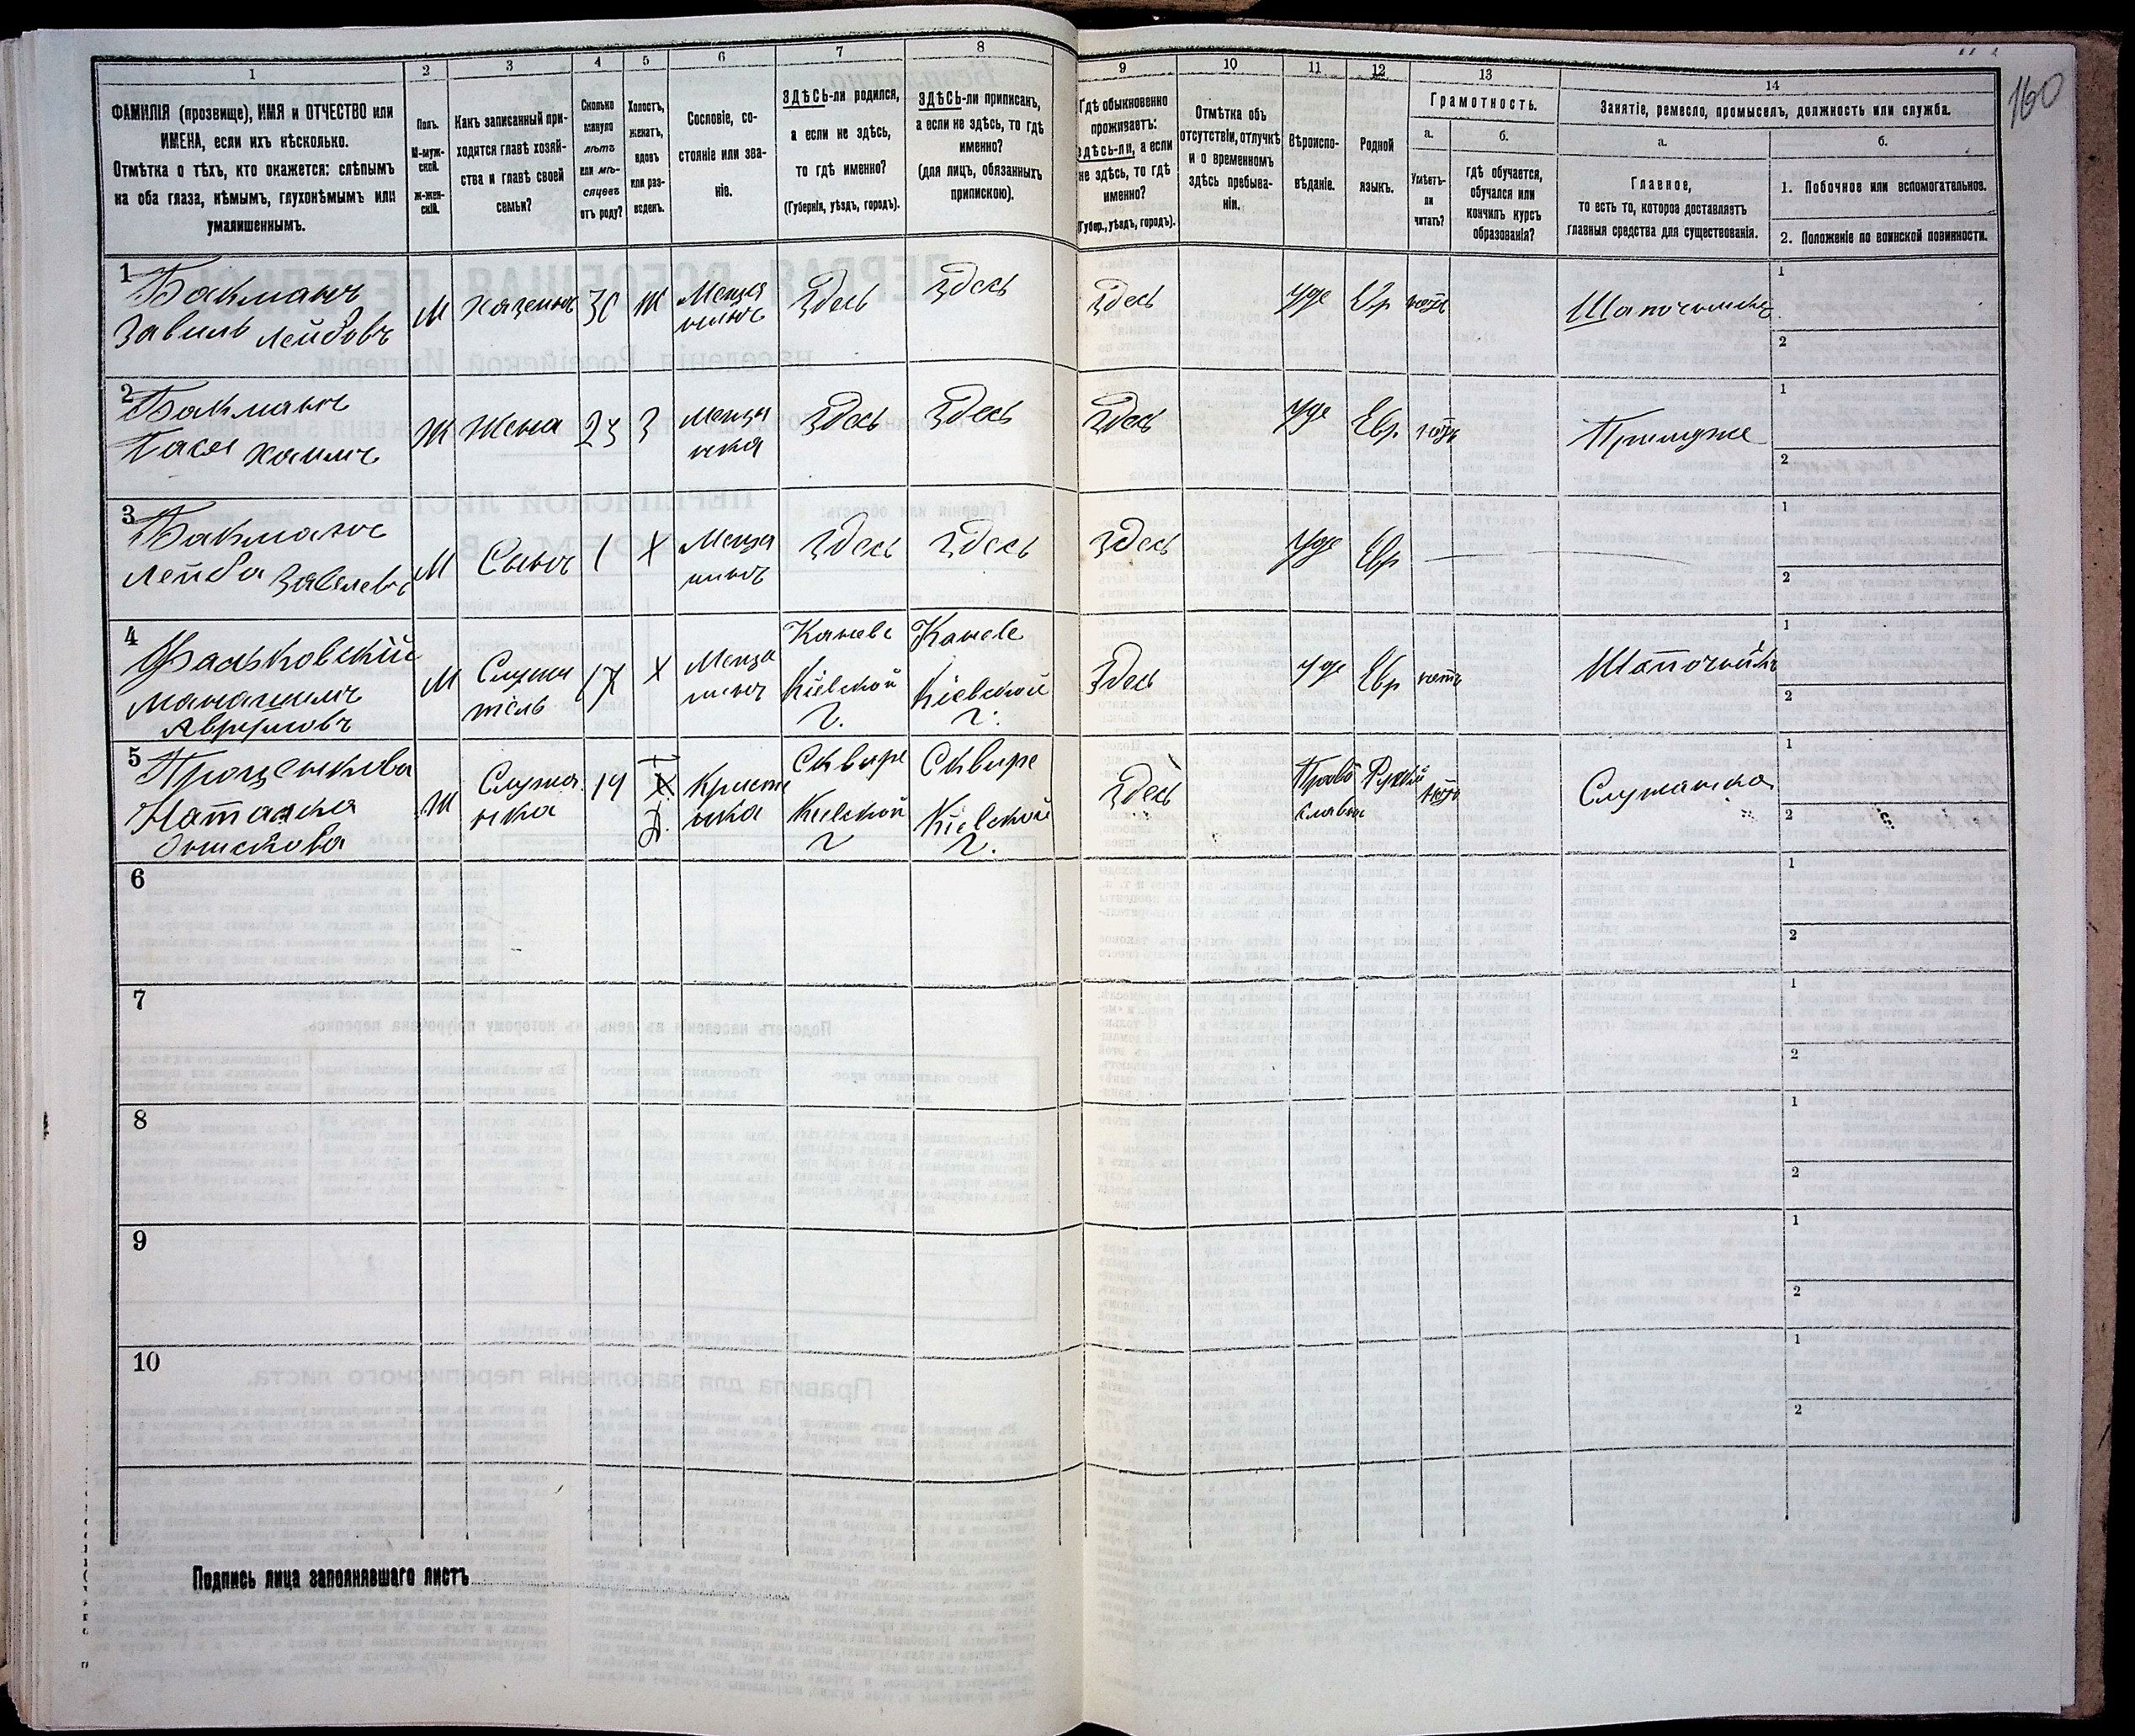 160
1 2 3 4 5 6 7 8 9 10 11 12 13 14
ФАМИЛІЯ (прозвище), ИМЯ и ОТЧЕСТВО или
ИМЕНА, если ихъ нѣсколько.
Отмѣтка о тѣхъ, кто окажется: слѣпымъ
на оба глаза, нѣмымъ, глухонѣмымъ или
умалишеннымъ.
Полъ.
М-муж-
ской.
Ж-жен-
скій.
Какъ записанный при-
ходится главѣ хозяй-
ства и главѣ своей
семьи?
Сколько
минуло
лѣтъ
или мѣ-
сяцевъ
отъ роду?
Холостъ,
женатъ,
вдовъ
или раз-
веденъ.
Сословіе, со-
стояніе или зва-
ніе.
ЗДѢСЬ-ли родился,
а если не здѣсь,
то гдѣ именно?
(Губернія, уѣздъ, городъ).
ЗДѢСЬ-ли приписанъ,
а если не здѣсь, то гдѣ
именно?
(для лицъ, обязанныхъ
припискою).
Гдѣ обыкновенно
проживаетъ:
здѣсь-ли, а если
не здѣсь, то гдѣ
именно?
(Губер., уѣздъ, городъ).
Отмѣтка объ
отсутствіи, отлучкѣ
и о временномъ
здѣсь пребыва-
ніи.
Вѣроиспо-
вѣданіе.
Родной
языкъ.
Грамотность.
а.
Умѣетъ-
ли
читать?
б.
гдѣ обучается,
обучался или
кончилъ курсъ
образованія?
Занятіе, ремесло, промыселъ, должность или служба.
а.
Главное,
то есть то, которое доставляетъ
главныя средства для существованія.
б.
1. Побочное или вспомогательное.
2. Положеніе по воинской повинности.
1
Бакманъ
Завиль Лейбовъ
М
30
Ж
Меща
нинъ
Здесь
Здесь
Здесь
Іуде
Евр
нетъ
1
2
2
Бакманъ
Бася Хаимъ
Ж
Жена
23
З
Меща
нка
Здесь
Здесь
Здесь
Іуде
Евр.
нетъ
1
2
3
Бакманъ
Лейба Завелевъ
М
Сынъ
1
Х
Меща
нинъ
Здесь
Здесь
Здесь
Іуде
Евр
1
2
4
Фальковскій
М
Служи
тель
17
Х
Меща
нинъ
Каневе
Кіевской
г.
Каневе
Кіевской
г.
Здесь
Іуде
Евр
нетъ
1
2
5
Наталка
Ж
Служа
нка
19
Д.
Кристи
нка
Сквире
Киевской
г
Сквире
Кіевской
г.
Здесь
Право
славна
Рускій
нетъ
Служанка
1
2
6
1
2
7
1
2
8
1
2
9
1
2
10
1
2
Подпись лица заполнявшаго листъ